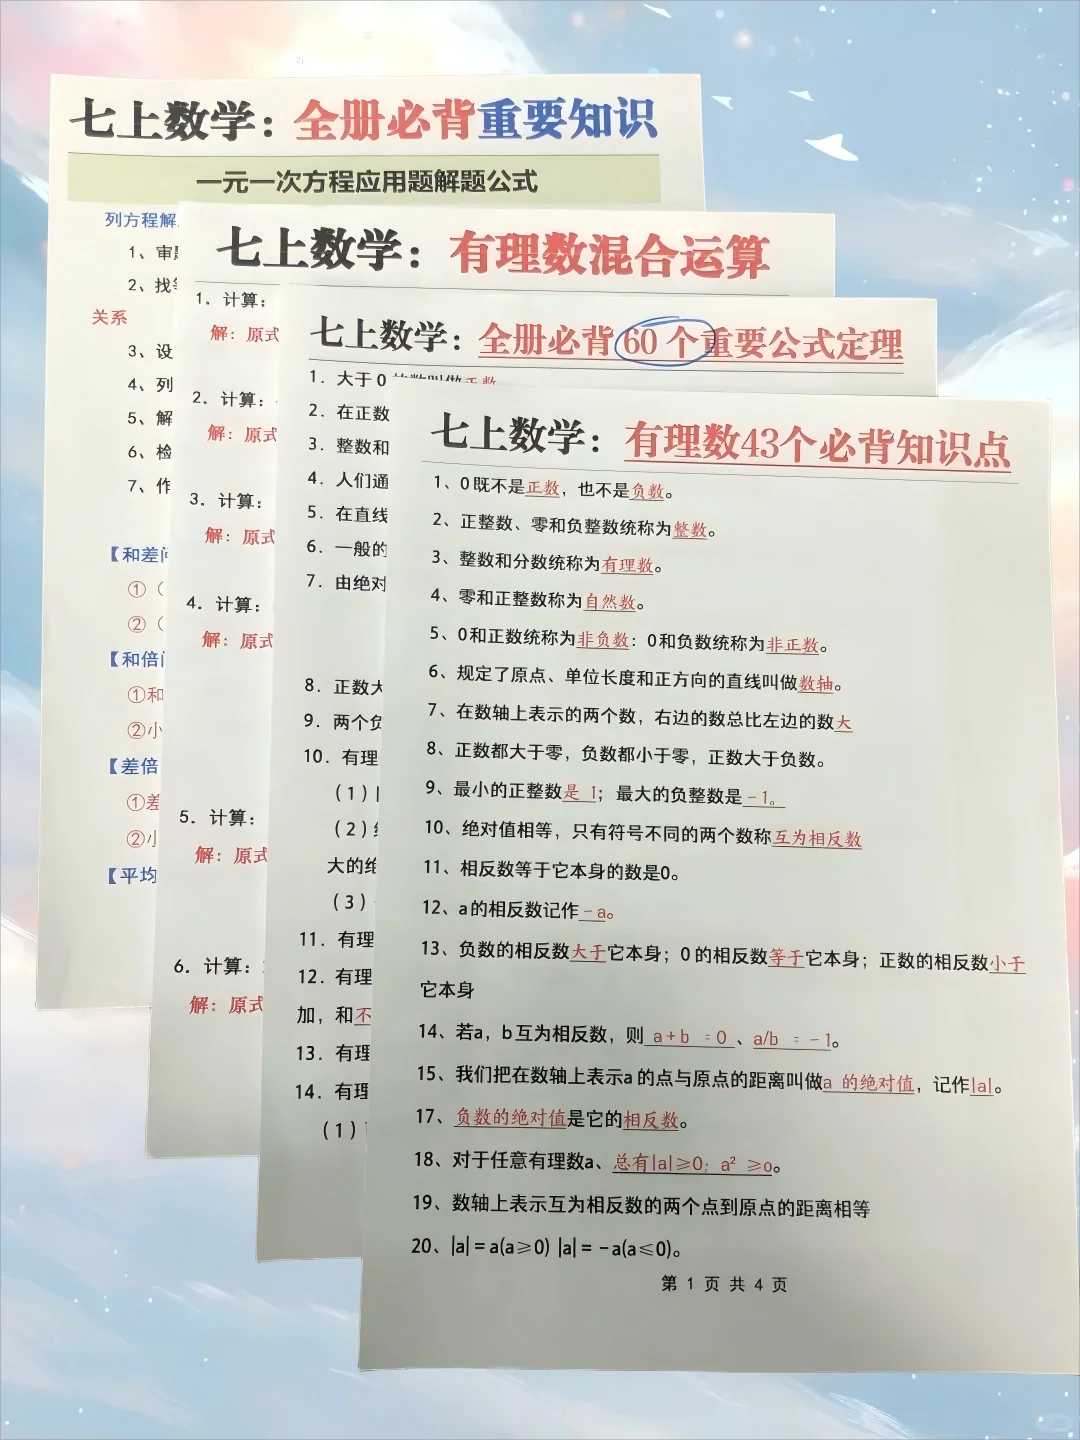 七上数学：全册必背重要知识
一元一次方程应用题解题公式
列方程解
1、审题
2、找等
关系
3、设
4、列
5、解
6、检
7、作
【和差问
①（
②（
【和倍问
①和
②小
【差倍
①差
②小
【平均
七上数学：有理数混合运算
1. 计算：
解：原式
2. 计算：
解：原式
3. 计算：
解：原式
4. 计算：
解：原式
5. 计算：
解：原式
6. 计算：
解：原式
七上数学：全册必背60个重要公式定理
1. 大于0的数叫做正数
2. 在正数
3. 整数和
4. 人们通
5. 在直线
6. 一般的
7. 由绝对
8. 正数大
9. 两个负
10. 有理
（1）
（2）
大的绝
（3）
11. 有理
12. 有理
加，和不
13. 有理
14. 有理
（1）
七上数学：有理数43个必背知识点
1、0既不是正数，也不是负数。
2、正整数、零和负整数统称为整数。
3、整数和分数统称为有理数。
4、零和正整数称为自然数。
5、0和正数统称为非负数：0和负数统称为非正数。
6、规定了原点、单位长度和正方向的直线叫做数轴。
7、在数轴上表示的两个数，右边的数总比左边的数大
8、正数都大于零，负数都小于零，正数大于负数。
9、最小的正整数是 1；最大的负整数是－1。
10、绝对值相等，只有符号不同的两个数称互为相反数
11、相反数等于它本身的数是0。
12、a的相反数记作－a。
13、负数的相反数大于它本身；0的相反数等于它本身；正数的相反数小于
它本身
14、若a，b互为相反数，则 a+b =0 、a/b =－1。
15、我们把在数轴上表示a的点与原点的距离叫做a 的绝对值，记作|a|。
17、负数的绝对值是它的相反数。
18、对于任意有理数a、总有|a|≥0；a² ≥o。
19、数轴上表示互为相反数的两个点到原点的距离相等
20、|a|=a(a≥0) |a|=－a(a≤0)。
第 1 页 共 4 页